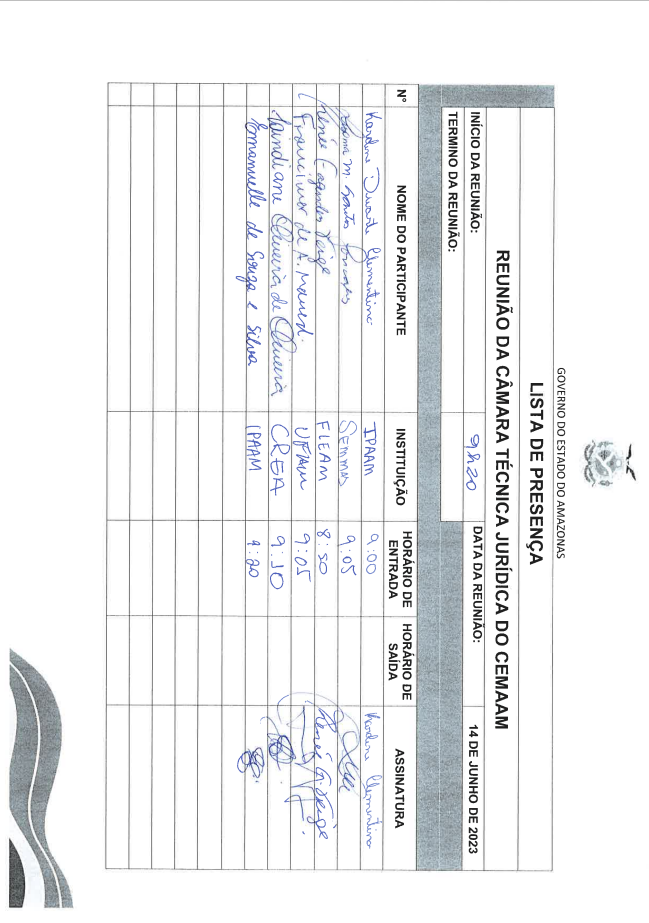 GOVERNO DO ESTADO DO AMAZONAS
LISTA DE PRESENÇA
REUNIÃO DA CÂMARA TÉCNICA JURÍDICA DO CEMAAM
INÍCIO DA REUNIÃO: 9h20 DATA DA REUNIÃO: 14 DE JUNHO DE 2023
TERMINO DA REUNIÃO:
N° NOME DO PARTICIPANTE INSTITUIÇÃO HORÁRIO DE ENTRADA HORÁRIO DE SAÍDA ASSINATURA
Karoline Duarte Clementino IPAAM 9:00 Karoline Clementino
M. Santos SEMMAS 9:05
Renée Veiga FIEAM 8:50 Renée Veiga
Francimar de A. UFAM 9:05
Oliveira de Oliveira CREA 9:10
Emanuelle de Souza e Silva IPAAM 9:20